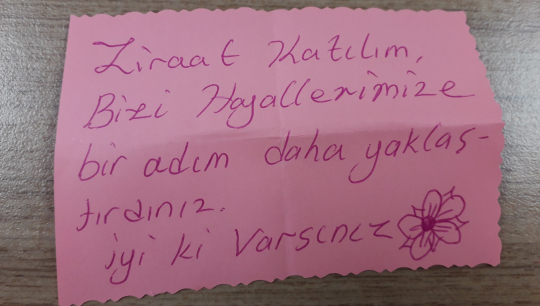 Ziraat Katılım,
Bizi Hayallerimize
bir adım daha yaklaş-
tırdınız.
iyi ki Varsınız